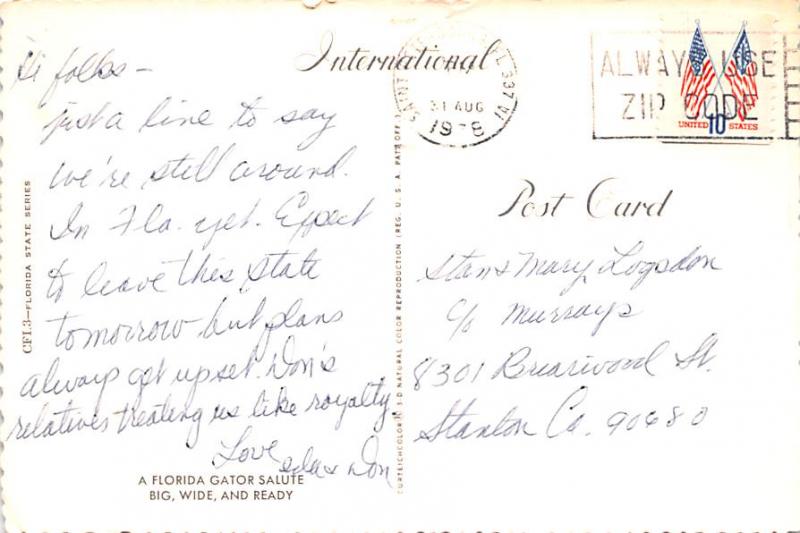 International
SAINT
L 337
31 AUG
1978
ALWAYS USE
ZIP CODE
UNITED 10 STATES
Hi folks –
just a line to say
we're still around.
In Fla. yet. Expect
to leave this state
tomorrow but plans
always get upset. Don's
relatives treating us like royalty
Love
& Don
A FLORIDA GATOR SALUTE
BIG, WIDE, AND READY
CFL3—FLORIDA STATE SERIES
CURTEICHCOLOR® 3-D NATURAL COLOR REPRODUCTION (REG. U. S. A. PAT'S OFF.)
Post Card
Stan & Mary Logsdon
c/o Murrays
8301 Briarwood St.
Stanton Ca. 90680